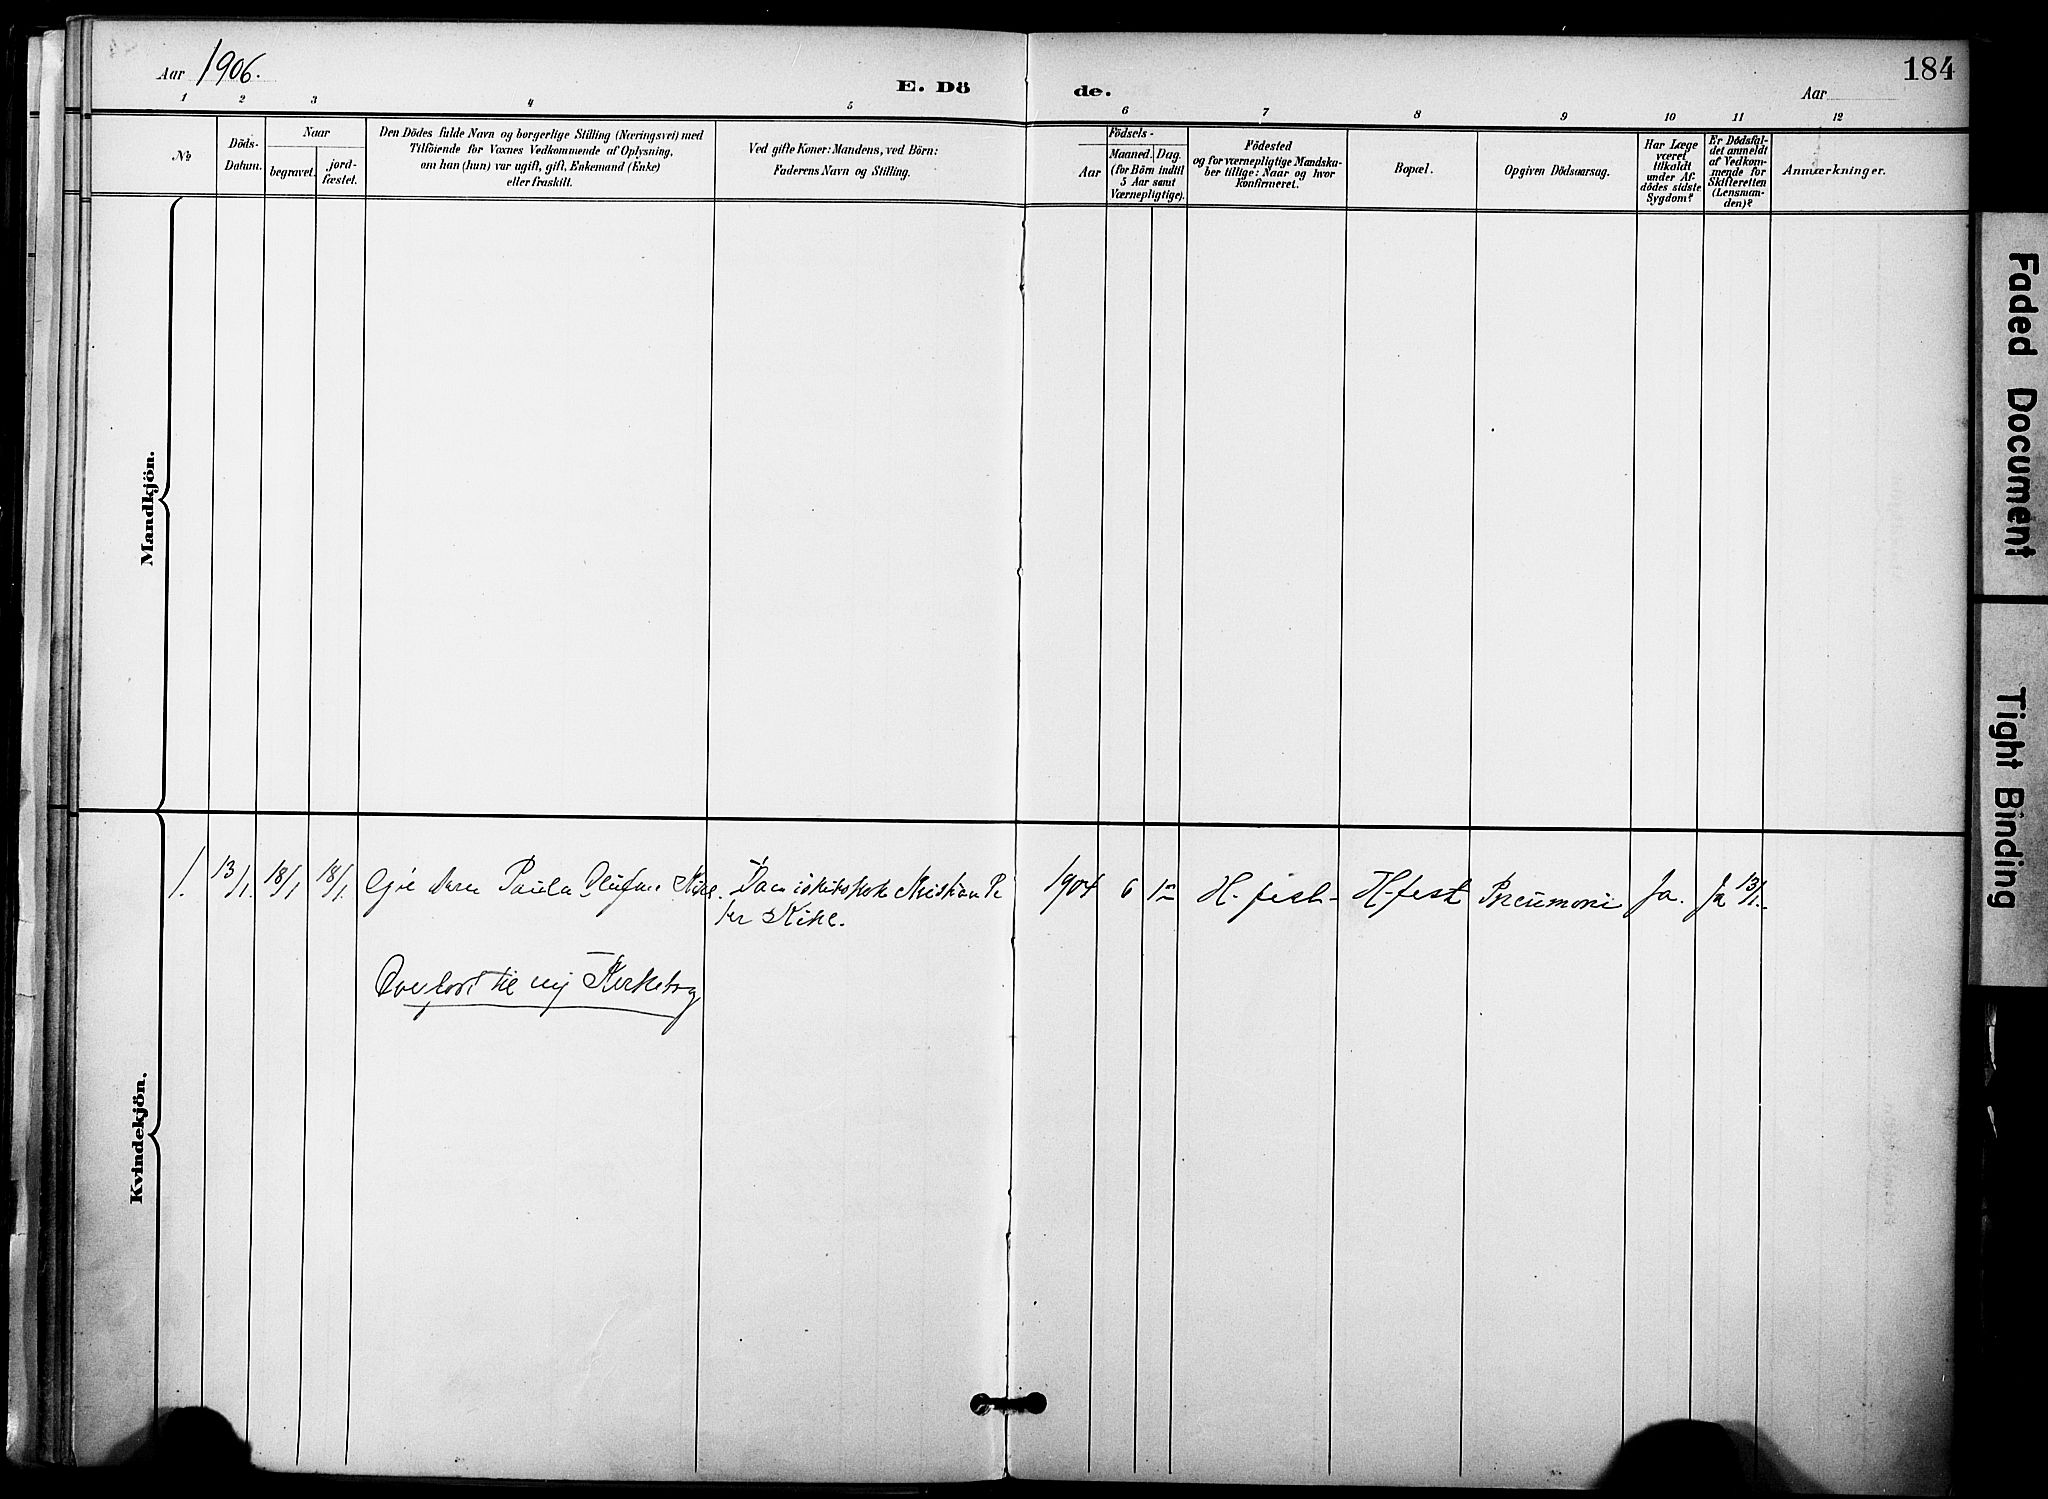 Aar 1906.
E. Dö
de.
Aar
184
1 2 3 4 5 6 7 8 9 10 11 12
№
Döds-
Datum.
Naar
begravet.
jord-
fæstet.
Den Dödes fulde Navn og borgerlige Stilling (Næringsvei) med
Tilföiende for Voxnes Vedkommende af Oplysning,
om han (hun) var ugift, gift, Enkemand (Enke)
eller fraskilt.
Ved gifte Koner: Mandens, ved Börn:
Faderens Navn og Stilling.
Födsels-
Aar
Maaned. Dag.
(for Börn indtil
5 Aar samt
Værnepligtige).
Födested
og for værnepligtige Mandska-
ber tillige: Naar og hvor
konfirmeret.
Bopæl.
Opgiven Dödsaarsag.
Har Læge
været
tilkaldt
under Af-
dödes sidste
Sygdom?
Er Dödsfal-
det anmeldt
af Vedkom-
mende for
Skifteretten
(Lensman-
den)?
Anmærkninger.
Mandkjön.
1. 13/1. 18/1 18/1. Paula Olufine Kihl. Kristian Pe
ter Kihl.
1904 6 H-fest- H-fest Pneumoni Ja. Ja 13/1.
Overført til ny Kirkebog
Kvindekjön.
Faded Document
Tight Binding